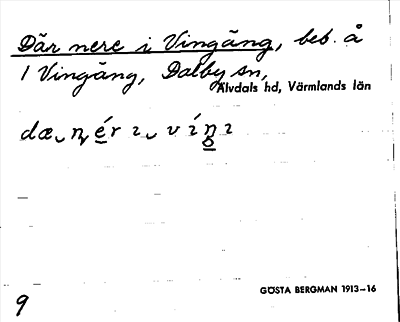 Där nere i Vingäng, beb. å
1 Vingäng, Dalby sn,
Älvdals hd, Värmlands län
dæ‿ꞃ ér ı‿v íŋ ı
GÖSTA BERGMAN 1913–16
9